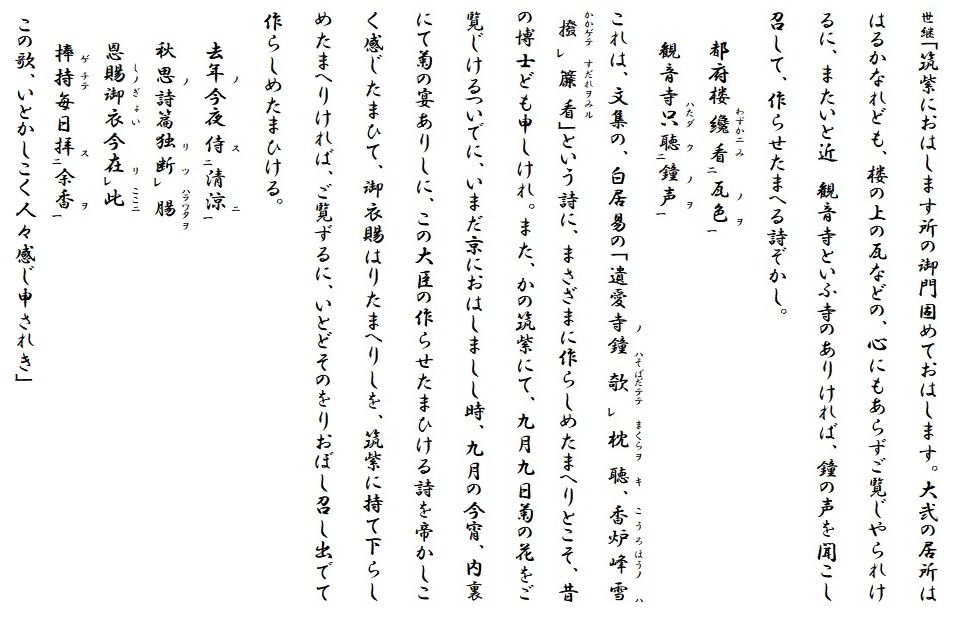 世継「筑紫におはします所の御門固めておはします。大弐の居所は
はるかなれども、楼の上の瓦などの、心にもあらずご覧じやられけ
るに、またいと近 観音寺といふ寺のありければ、鐘の声を聞こし
召して、作らせたまへる詩ぞかし。
都府楼纔わずかニ看みル二瓦ノ色ヲ一
観音寺只はたダ聴クニ鐘ノ声ヲ一
これは、文集の、白居易の「遺愛寺ノ鐘ハ欹そばだテテレ枕まくらヲ聴キ、香炉峰こうろほうノ雪ハ
撥かかゲテレ簾すだれヲ看みル」という詩に、まさざまに作らしめたまへりとこそ、昔
の博士ども申しけれ。また、かの筑紫にて、九月九日菊の花をご
覧じけるついでに、いまだ京におはしましし時、九月の今宵、内裏
にて菊の宴ありしに、この大臣の作らせたまひける詩を帝かしこ
く感じたまひて、御衣賜はりたまへりしを、筑紫に持て下らし
めたまへりければ、ご覧ずるに、いとどそのをりおぼし召し出でて
作らしめたまひける。
去年ノ今夜侍ス二清涼ニ一
秋思ノ詩篇独リ断ツレ腸ハラワタヲ
恩賜しノ御衣ぎょい今在リレ此ここニ
捧ゲ持チテ毎日拝ス二余香ヲ一
この歌、いとかしこく人々感じ申されき」